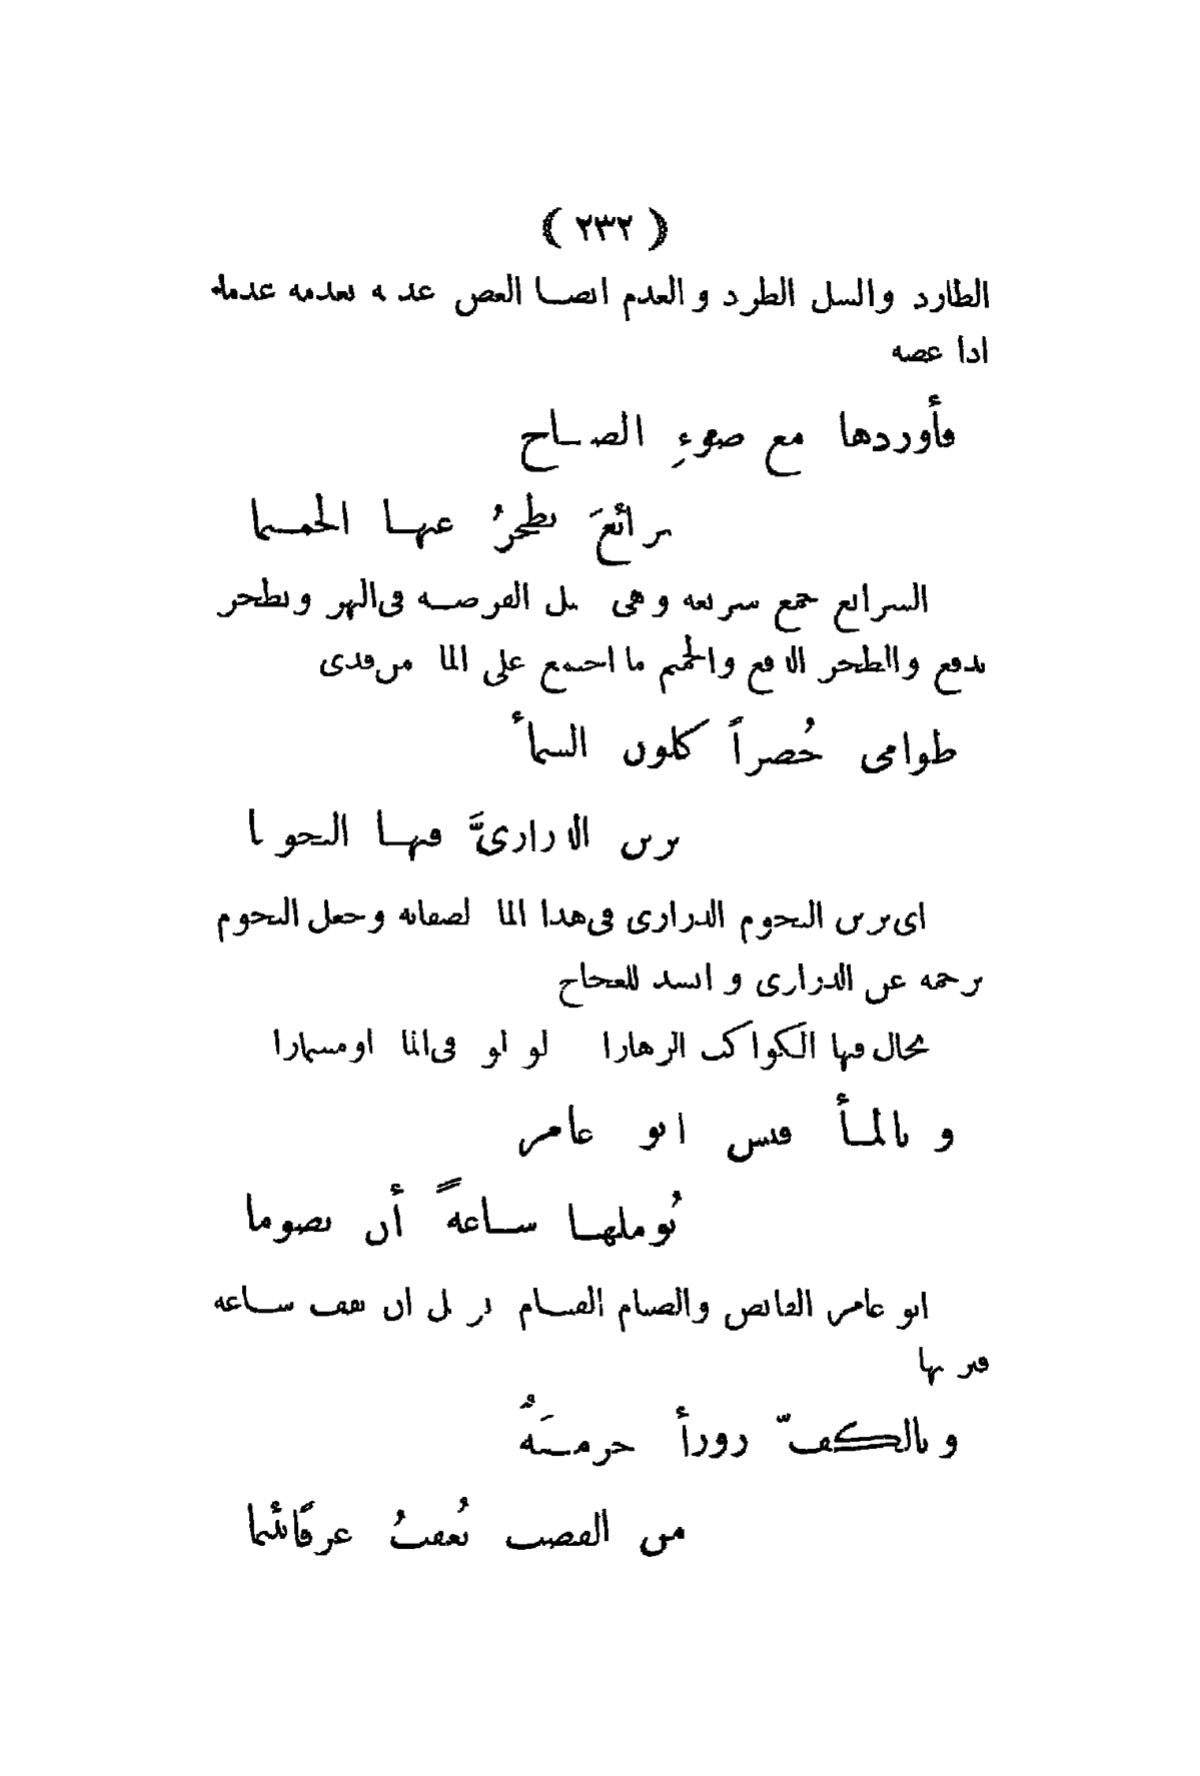 ﴿ ٢٣٢ ﴾
الطارد والشل الطرد و العذم ايضا العض عذمه يعذمه عذما
اذا عضه
فأوردها مع ضوءِ الصباح
شرائعَ تطحرُ عنها الجميما
الشرائع جمع شريعة وهى مثل الفرضة فى النهر وتطحر
تدفع والطحر الدفع والجميم ما اجتمع على الماء من قذى
طوامى خُضراً كلون السماء
يزين الدرارىَّ فيها النجوما
اى يزين النجوم الدرارى فى هذا الماء لصفائه وجعل النجوم
ترجمة عن الدرارى وانشد للعجاج
تخال فيها الكواكب الزهارا لؤلؤة فى الماء او مسمارا
وبالماء قيس ابو عامر
يُوملها ساعةً أن تصوما
ابو عامر القانص والصيام القيام ان تقف ساعة
فيرميها
وبالكفّ زوراء حرميَةٌ
من القضب تُعقبُ عزفًا نئيما